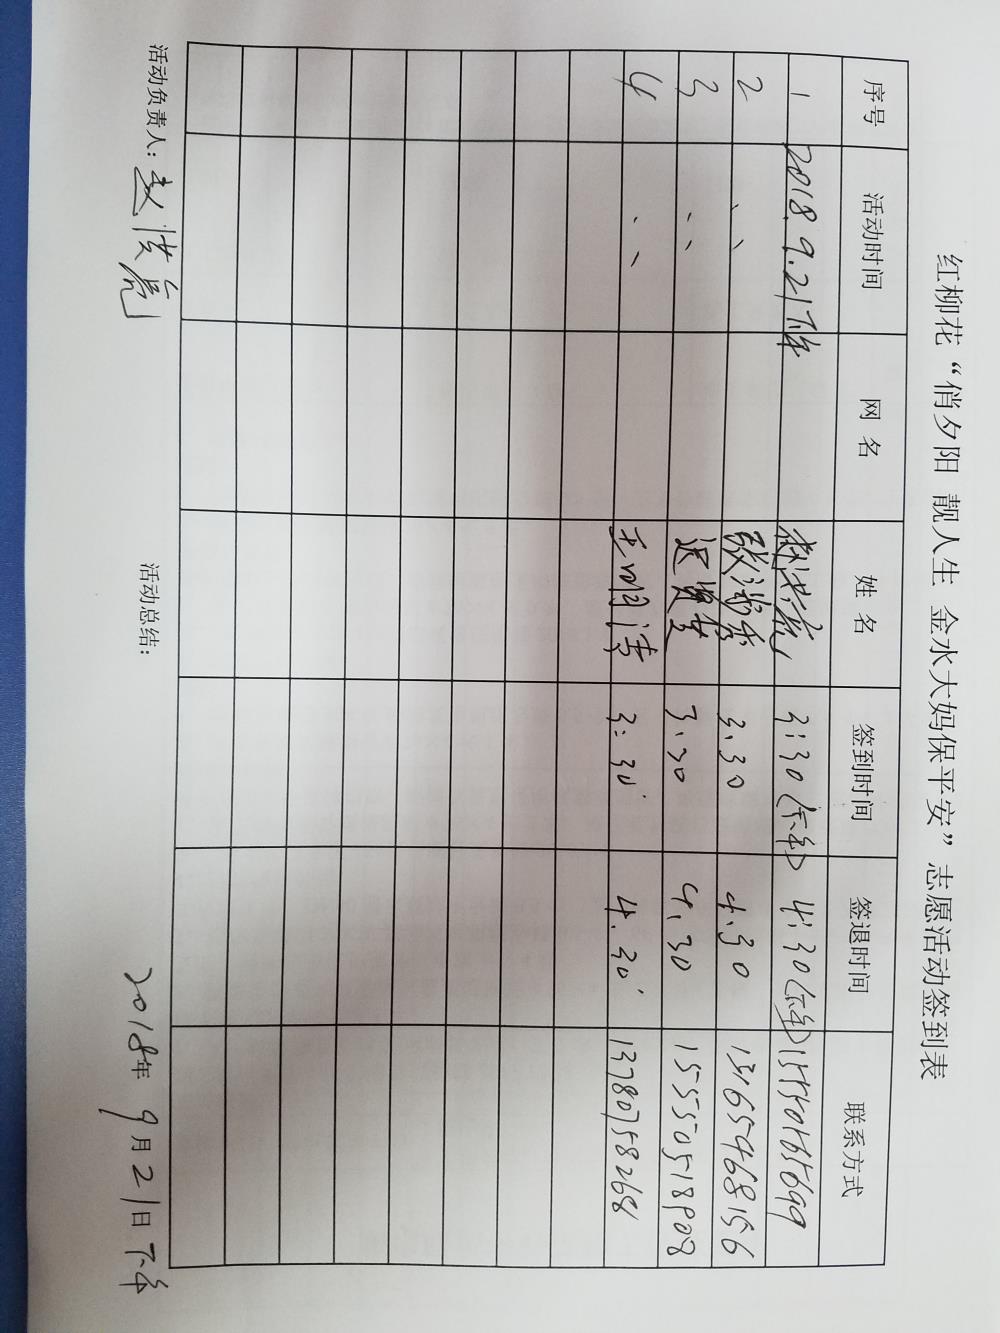 红柳花“俏夕阳 靓人生 金水大妈保平安”志愿活动签到表
序号 活动时间 网 名 姓 名 签到时间 签退时间 联系方式
1 2018.9.21下午 赵洪亮 3:30(下午) 4:30(下午)
2 、、 3.30 4.30 13165468156
3 、、 3.30 4.30 15550518908
4 、、 3:30 4.30 13780758268
活动负责人：赵洪亮 活动总结： 2018年9月21日下午